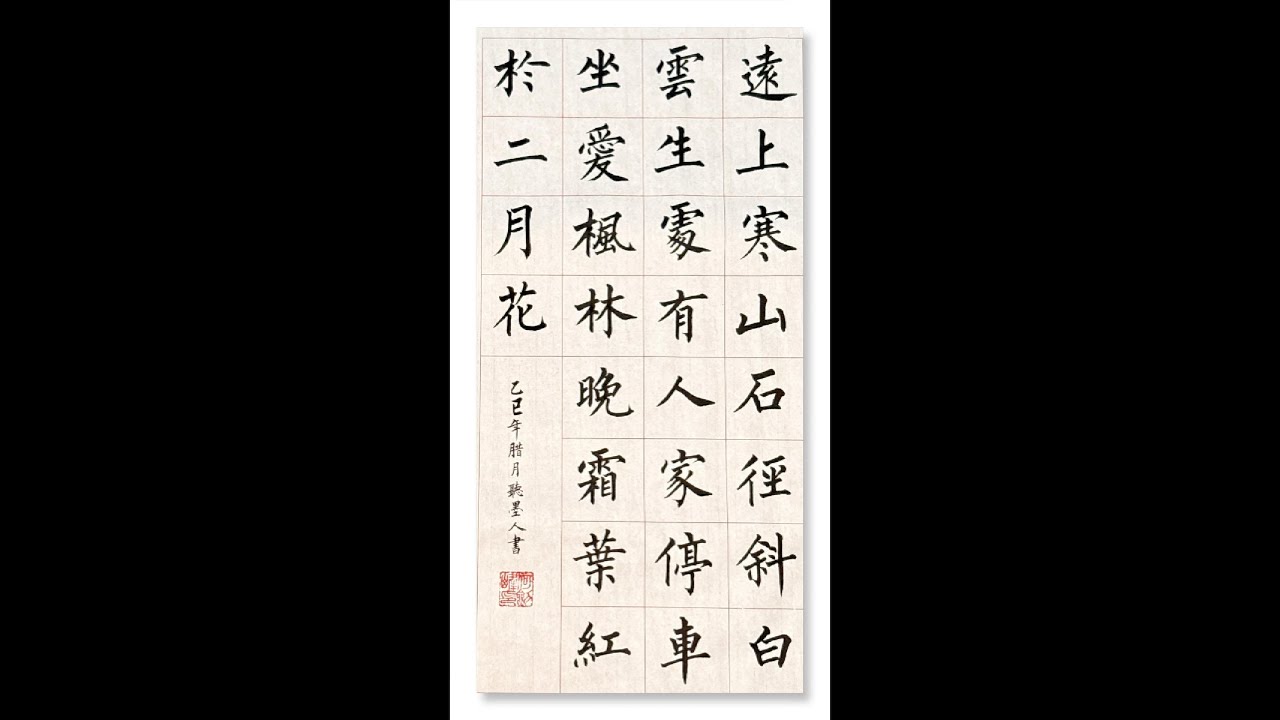 遠上寒山石徑斜白
雲生處有人家停車
坐愛楓林晚霜葉紅
於二月花
乙巳年腊月聽墨人書